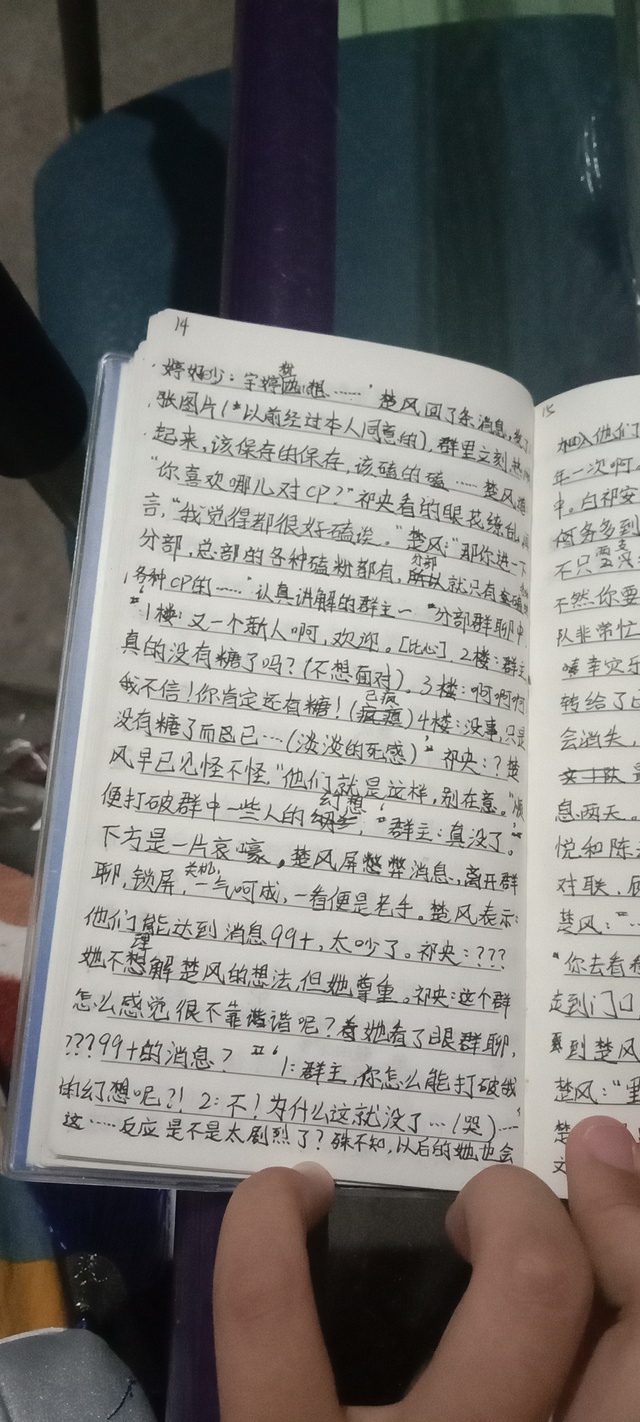 14
婷好吵：宇婷……"楚风回了条消息,发了
张图片(*以前经过本人同意的),群里立刻
起来,该保存的保存,该磕的磕……楚风
"你喜欢哪几对CP?"祁央看的眼花缭乱,
言,"我觉得都很好磕诶。"楚风:"那你进一下
分部,总部的各种磕粉都有,分部就只有
各种CP的……"认真讲解的群主一 "分部群聊中,
1楼:又一个新人啊,欢迎。[比心]. 2楼:群主
真的没有糖了吗?(不想面对). 3楼:啊啊啊
我不信!你肯定还有糖!(已疯)4楼:没事,只是
没有糖了而已…(淡淡的死感)" 祁央:?楚
风早已见怪不怪,"他们就是这样,别在意。"顺
便打破群中一些人的幻想,"群主:真没了。"
下方是一片哀嚎,楚风屏蔽消息,离开群
聊,锁屏,关机,一气呵成,一看便是老手。楚风表示:
他们能达到消息99+,太吵了。祁央:???
她不理解楚风的想法,但她尊重。祁央:这个群
怎么感觉很不靠谱呢?她看了眼群聊,
???99+的消息? "1:群主,你怎么能打破我
的幻想呢?! 2:不!为什么这就没了…(哭)……"
这……反应是不是太剧烈了?殊不知,以后的她也会
15
加入他们
年一次啊
中。白祁安
任务多到
不只
不然你要
队非常忙
幸灾乐
转给了
会消失,
息两天。
悦和陈
对联,
楚风:"
"你去看
走到门口
到楚风
楚风:"
楚
文